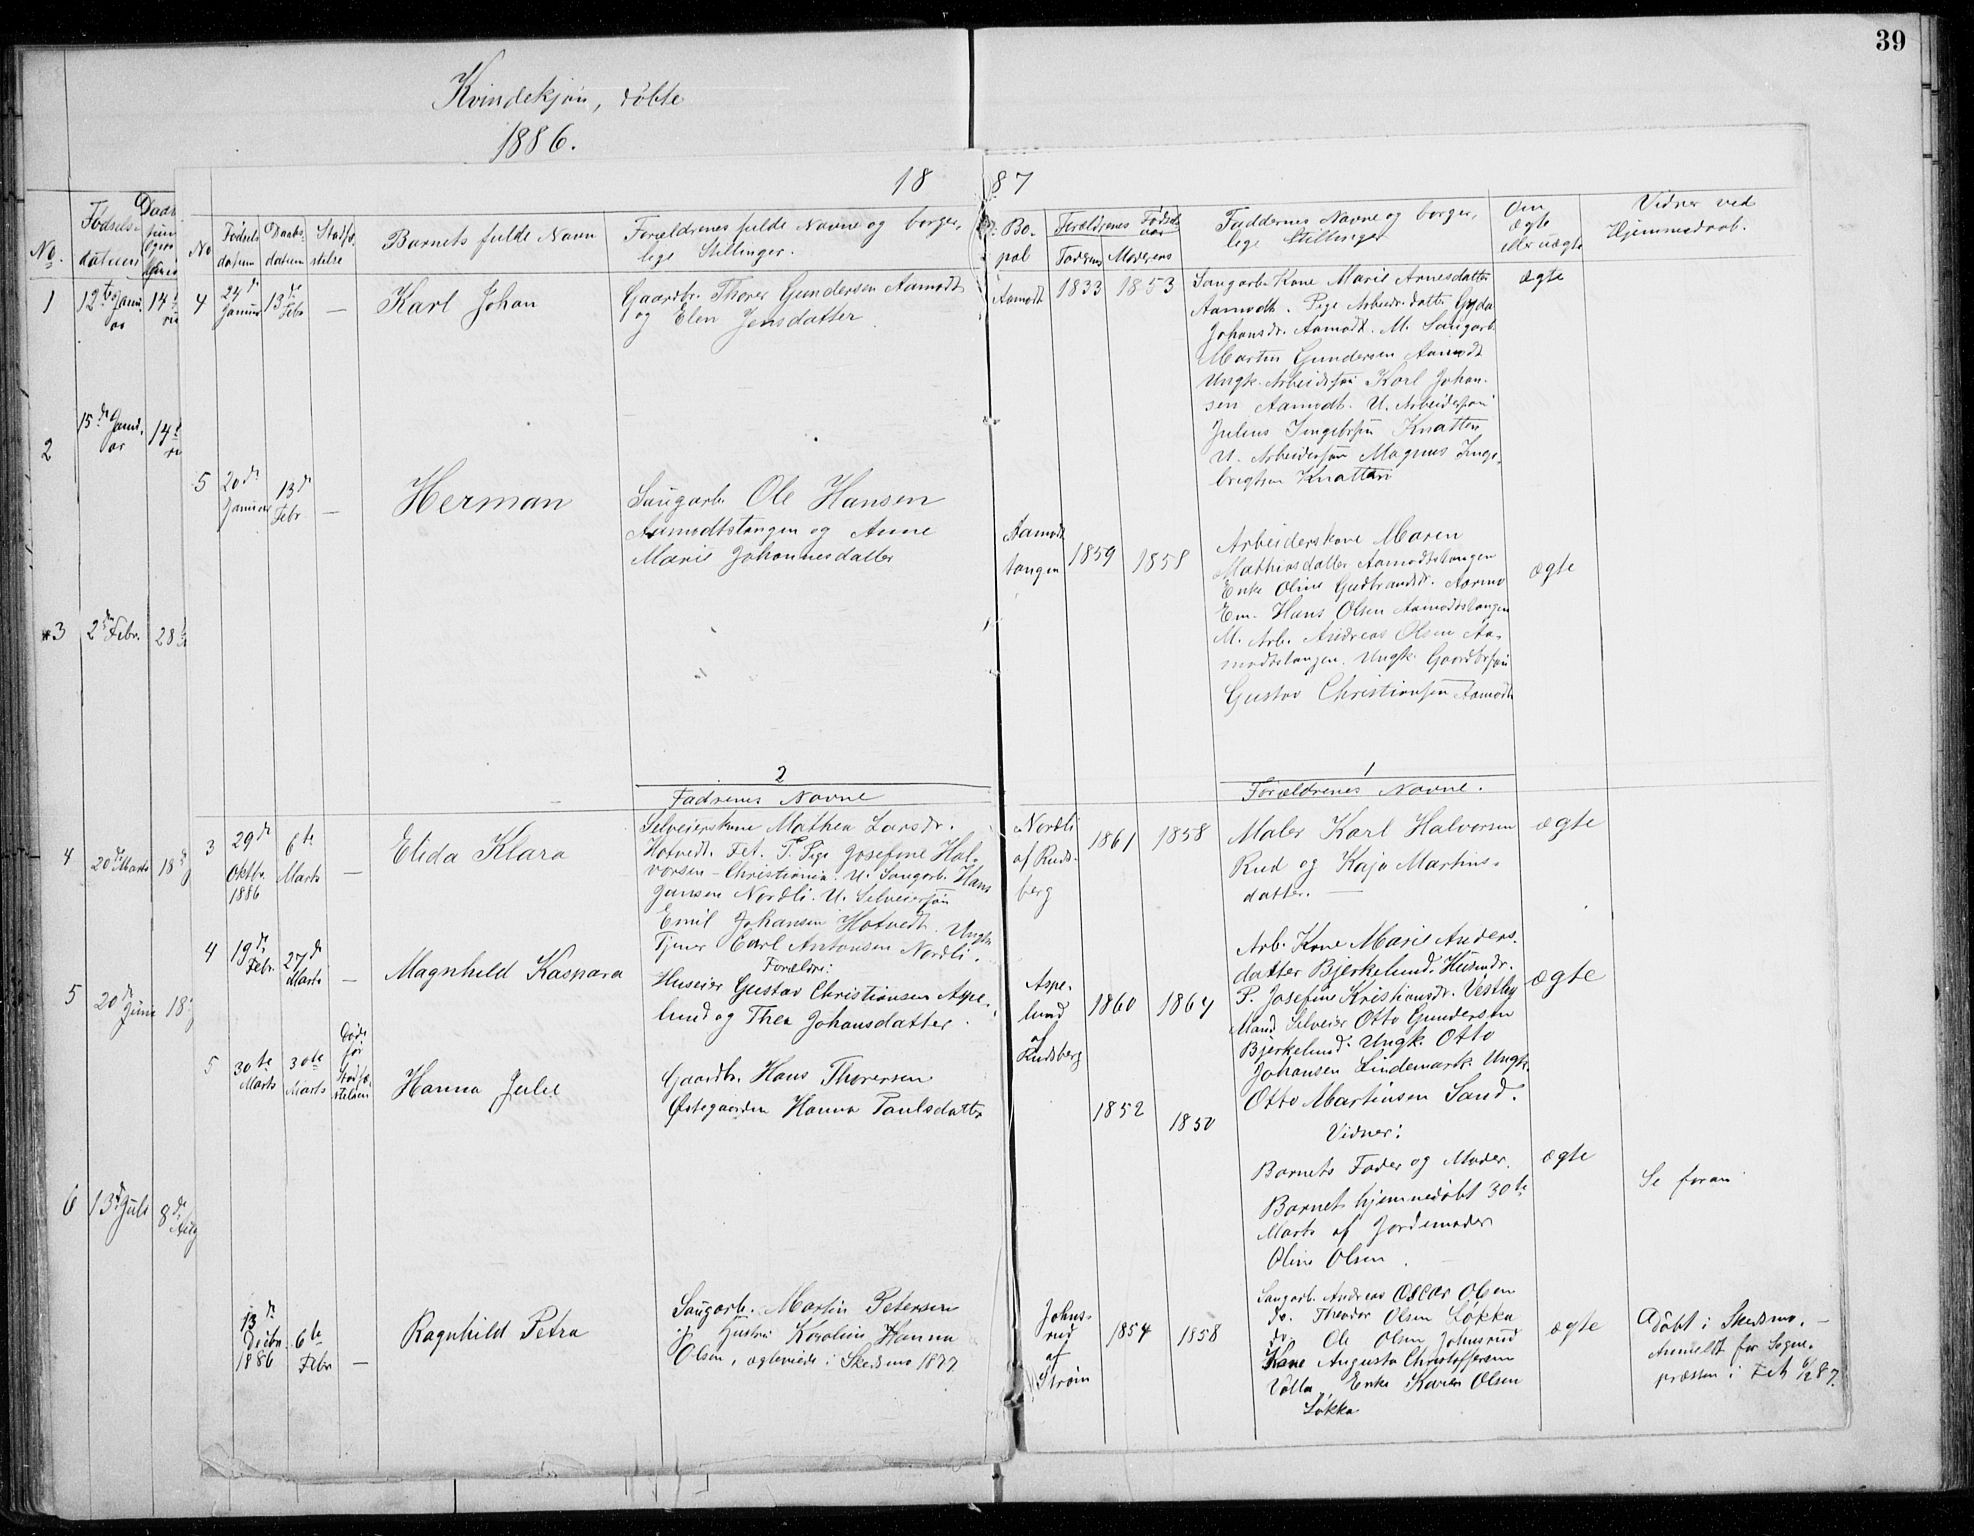 39
Kvindekjøn, døbte
1886.
18 87
No. Fødsels- datum
No Fødsels datum Daabs- datum Stadfæ- stelse Barnets fulde Navn Forældrenes fulde Navne og borger- lige Stillinger. Bo- pæl Forældrenes Fødsels aar Faderens Moderens Faddernes Navne og borger- lige Stillinger Om ægte eller uægte Vidner ved Hjemmedaab.
1 12te Janu- ar 14
2 15de Janu- ar 14
3 2den Febr. 28
4 20de Marts 18
5 20de Juni 18
6 13de Juli 8de Aug
4 24de Januar 13de Febr — Karl Johan
Gaardbr. Thorer Gundersen Aamodt
og Elen Jensdatter
Aamodt 1833 1853
Saugarb. Kone Marie Arnesdatter
Aamodt. Pige Arbeidr.datter Gyda
Johansdr. Aamodt. M. Saugarb.
Martin Gundersen Aamodt
Ungk. Arbeidssøn Karl Johan-
sen Aamodt. U. Arbeidersøn
Julius Ingebrsen Knatten
U. Arbeidersøn Magnus Inge-
brigtsen Knatten
ægte
5 20de Januar 13de Febr — Herman
Saugarb. Ole Hansen
Aamodtstangen og Anne
Marie Johannesdatter
Aamodt
tangen
1859 1858
Arbeiderskone Maren
Mathiasdatter Aamodtstangen
Enke Oline Gudbrandsdr. Aarmo
Em. Hans Olsen Aamodtstangen
M. Arb. Andreas Olsen Aa-
modtstangen. Ungk. Gaardbrsøn
Gustav Christiansen Aamodt
ægte
2
Fadrenes Navne
1
Forældrenes Navne.
3 29de Oktbr. 1886 6te Marts — Elida Klara
Selveierskone Mathea Larsdr.
Hotvedt. Fet. P. Pige Josefine Hal-
vorsen - Christiania. U. Saugarb. Hans
Jansen Nordli. U. Selveiersøn
Emil Johansen Hotvedt. Ungk.
Tjener Carl Antonsen Nordli.
Nordli
af Ruds-
berg
1861 1858
Maler Karl Halvorsen
Rud og Kaja Martins-
datter.
ægte
4 19de Febr. 27de Marts — Magnhild Kaspara
Forældre:
Huseier Gustav Christiansen Aspe-
lund og Thea Johansdatter.
Aspe-
lund
af
Rudsberg
1860 1864
Arb. Kone Marie Anders-
datter Bjerkelund. Husmdr.
P. Josefine Kristiansdr. Vestby
Mand Selveier Otto Gundersen
Bjerkelund. Ungk. Otto
Johansen Lindemark. Ungk.
Otto Martinsen Sand.
ægte
5 30te Marts 30te Marts Døde før Stadfæ- stelsen Hanna Julie
Gaardbr. Hans Thorersen
Østegaarden Hanna Paulsdatter
1852 1850
Vidner:
Barnets Fader og Moder.
Barnet hjemmedøbt 30te
Marts af Jordemoder
Oline Olsen.
ægte
Se foran
13de Decbr. 1886 6te Febr — Ragnhild Petra
Saugarb. Martin Petersen
og Hustru Karoline Hanna
Olsen, ægteviede i Skedsmo 1877
Johns-
rud
af
Strøm
1854 1858
Saugarb. Andreas Oscar Olsen
do. Theodor Olsen Løkka
do. Ole Olsen Johnsrud
Kone Augusta Christoffersen
Volla, Enke Karen Olsen
Løkka
ægte
Døbt i Skedsmo. —
Anmeldt for Sogne-
præsten i Fet 6/2 87.